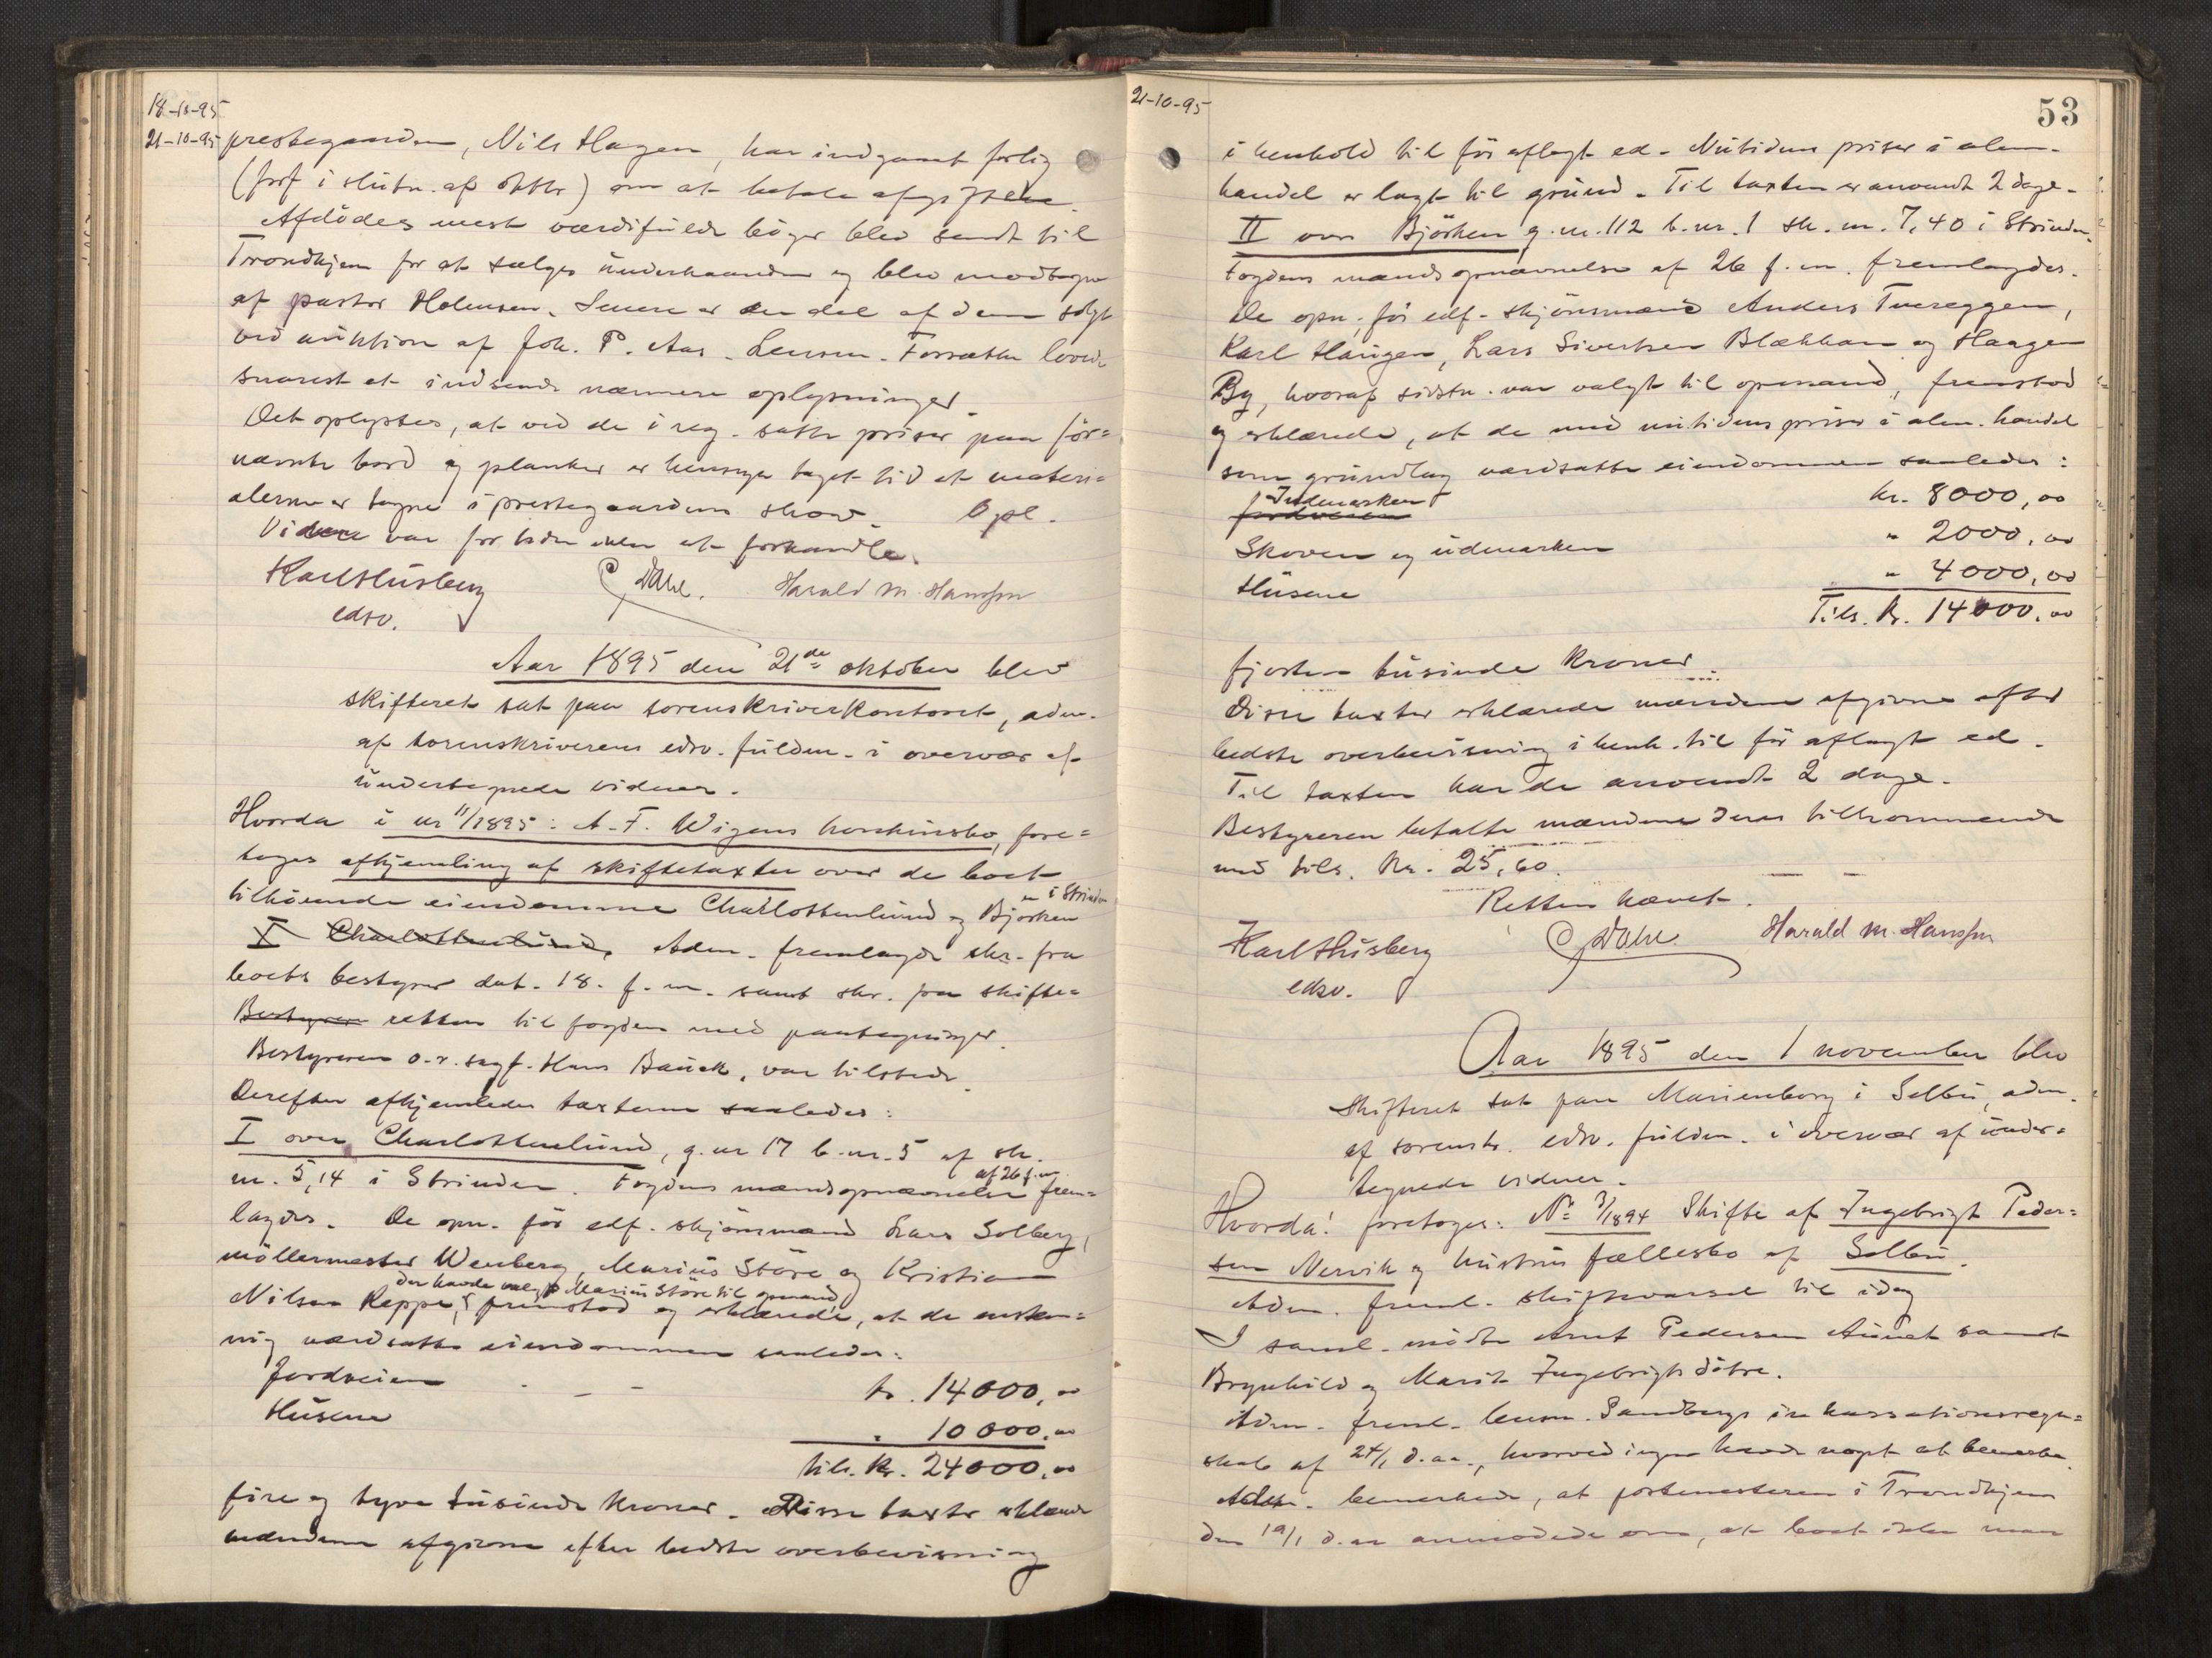 18-10-95
21-10-95
prestegaarden, Nils Hagen, har indgaaet forlig
(jvf i slutn. af oktbr) om at betale afgiftene.
Afdødes mest værdifulde bøger blev sendt til
Trondhjem for at sælges underhaanden og blev modtagne
af pastor Holmsen. Senere er en del af dem solgt
ved auktion af Joh. P. Aas. Lensm. Forsæther lovede
snarest at indsende nærmere oplysninger.
Det oplystes, at ved de i reg. satte priser paa før=
nævnte bord og planker er hensyn taget til at materi=
alerne er tagne i prestegaardens skov. Opl.
Videre var for tiden ikke at forhandle.
Karl Husberg
edsv.
C Dahl.
Harald M. Hansen
Aar 1895 den 21de oktober blev
skifteret sat paa sorenskriverkontoret, adm.
af sorenskriverens edsv. fuldm. i overvær af
undertegnede vidner.
Hvorda i nr 11/1895: A. F. Wigens konkursbo, fore=
toges afhjemling af skiftetaxter over de boet
tilhørende eiendomme Charlottenlund og Bjørken i Strinden
I Charlottenlund, Adm. fremlagde skr. fra
boets bestyrer dat. 18. f. m. samt skr. fra skifte=
Bestyreren retten til fogden med paategninger.
Bestyreren o.r.sagf. Hans Bauck, var tilstede.
Derefter afhjemledes taxterne saaledes:
I over Charlottenlund, g. nr 17 b. nr. 5 af sk.
m. 5,14 i Strinden. Fogdens mandsopnævnelse af 26 f. m. frem=
lagdes. De opn. før edf. skjønsmænd Lars Solberg,
møllermester Wenberg, Marius Støre og Kristian
Nilsen Reppe, der havde valgt Marius Støre til opmand, fremstod og erklærede, at de enstem=
mig værdsatte eiendommen saaledes:
Jordveien kr. 14000,00
Husene " 10000,00
tils. kr. 24000,00
fire og tyve tusinde kroner. Disse taxter erklærede
mændene afgivne efter bedste overbevisning
21-10-95
53
i henhold til før aflagt ed. Nutidens priser i alm.
handel er lagt til grund. Til taxten er anvendt 2 dage.
II over Bjørken g. nr. 112 b. nr. 1 sk. m. 7,40 i Strinden.
Fogdens mandsopnævnelse af 26 f. m. fremlagdes.
De opn. før edf. skjønsmænd Anders Tvereggen,
Karl Haugen, Lars Sivertsen Blækkan og Haagen
By, hvoraf sidstn. var valgt til opmand, fremstod
og erklærede, at de med nutidens priser i alm. handel
som grundlag værdsatte eiendommen saaledes:
Jordveien Indmarken kr. 8000,00
Skoven og udmarken " 2000,00
Husene " 4000,00
Tils. kr. 14000,00
fjorten tusinde kroner.
Disse taxter erklærede mændene afgivne efter
bedste overbevisning i henh. til før aflagt ed.
Til taxten har de anvendt 2 dage.
Bestyreren betalte mændene deres tilkommende
med tils. kr. 25,60.
Retten hævet.
Karl Husberg
edsv.
C Dahl.
Harald M. Hansen
Aar 1895 den 1 november blev
skifteret sat paa Marienborg i Selbu, adm.
af sorenskr. edsv. fuldm. i overvær af under=
tegnede vidner.
Hvorda! foretoges: No 3/1894 Skifte af Ingebrigt Peder=
sen Nervik og hustrus fællesbo af Selbu.
Adm. freml. skiftevarsel til idag
I saml. mødte Arnt Pedersen Aunet samt
Brynhild og Marit Ingebrigtsdøtre.
Adm. freml. lensm. Sandbergs inkassationsregn=
skab af 24/1 d. aa., hvorved ingen havde noget at bemerke.
Adm. bemerkede, at postmesteren i Trondhjem
den 19/1 d. aa anmodede om, at boet ikke maa